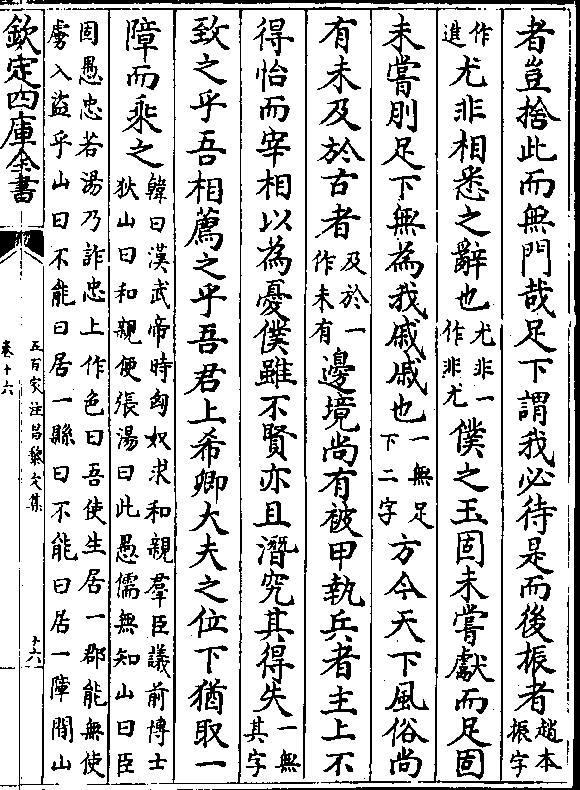 者豈捨此而無門哉足下謂我必待是而後振者趙本振字
作進尤非相悉之辭也尤非一作非尤僕之玉固未嘗獻而足固
未嘗刖足下無為我戚戚也一無足下二字方今天下風俗尚
有未及於古者及於一作未有邊境尚有被甲執兵者主上不
得怡而宰相以為憂僕雖不賢亦且潛究其得失一無其字
致之乎吾相薦之乎吾君上希卿大夫之位下猶取一
障而乘之韓曰漢武帝時匈奴求和親羣臣議前博士狄山曰和親便張湯曰此愚儒無知山曰臣
固愚忠若湯乃詐忠上作色曰吾使生居一郡能無使虜入盜乎山曰不能曰居一縣曰不能曰居一障間山
欽定四庫全書
五百家注昌黎文集
卷十六
十六